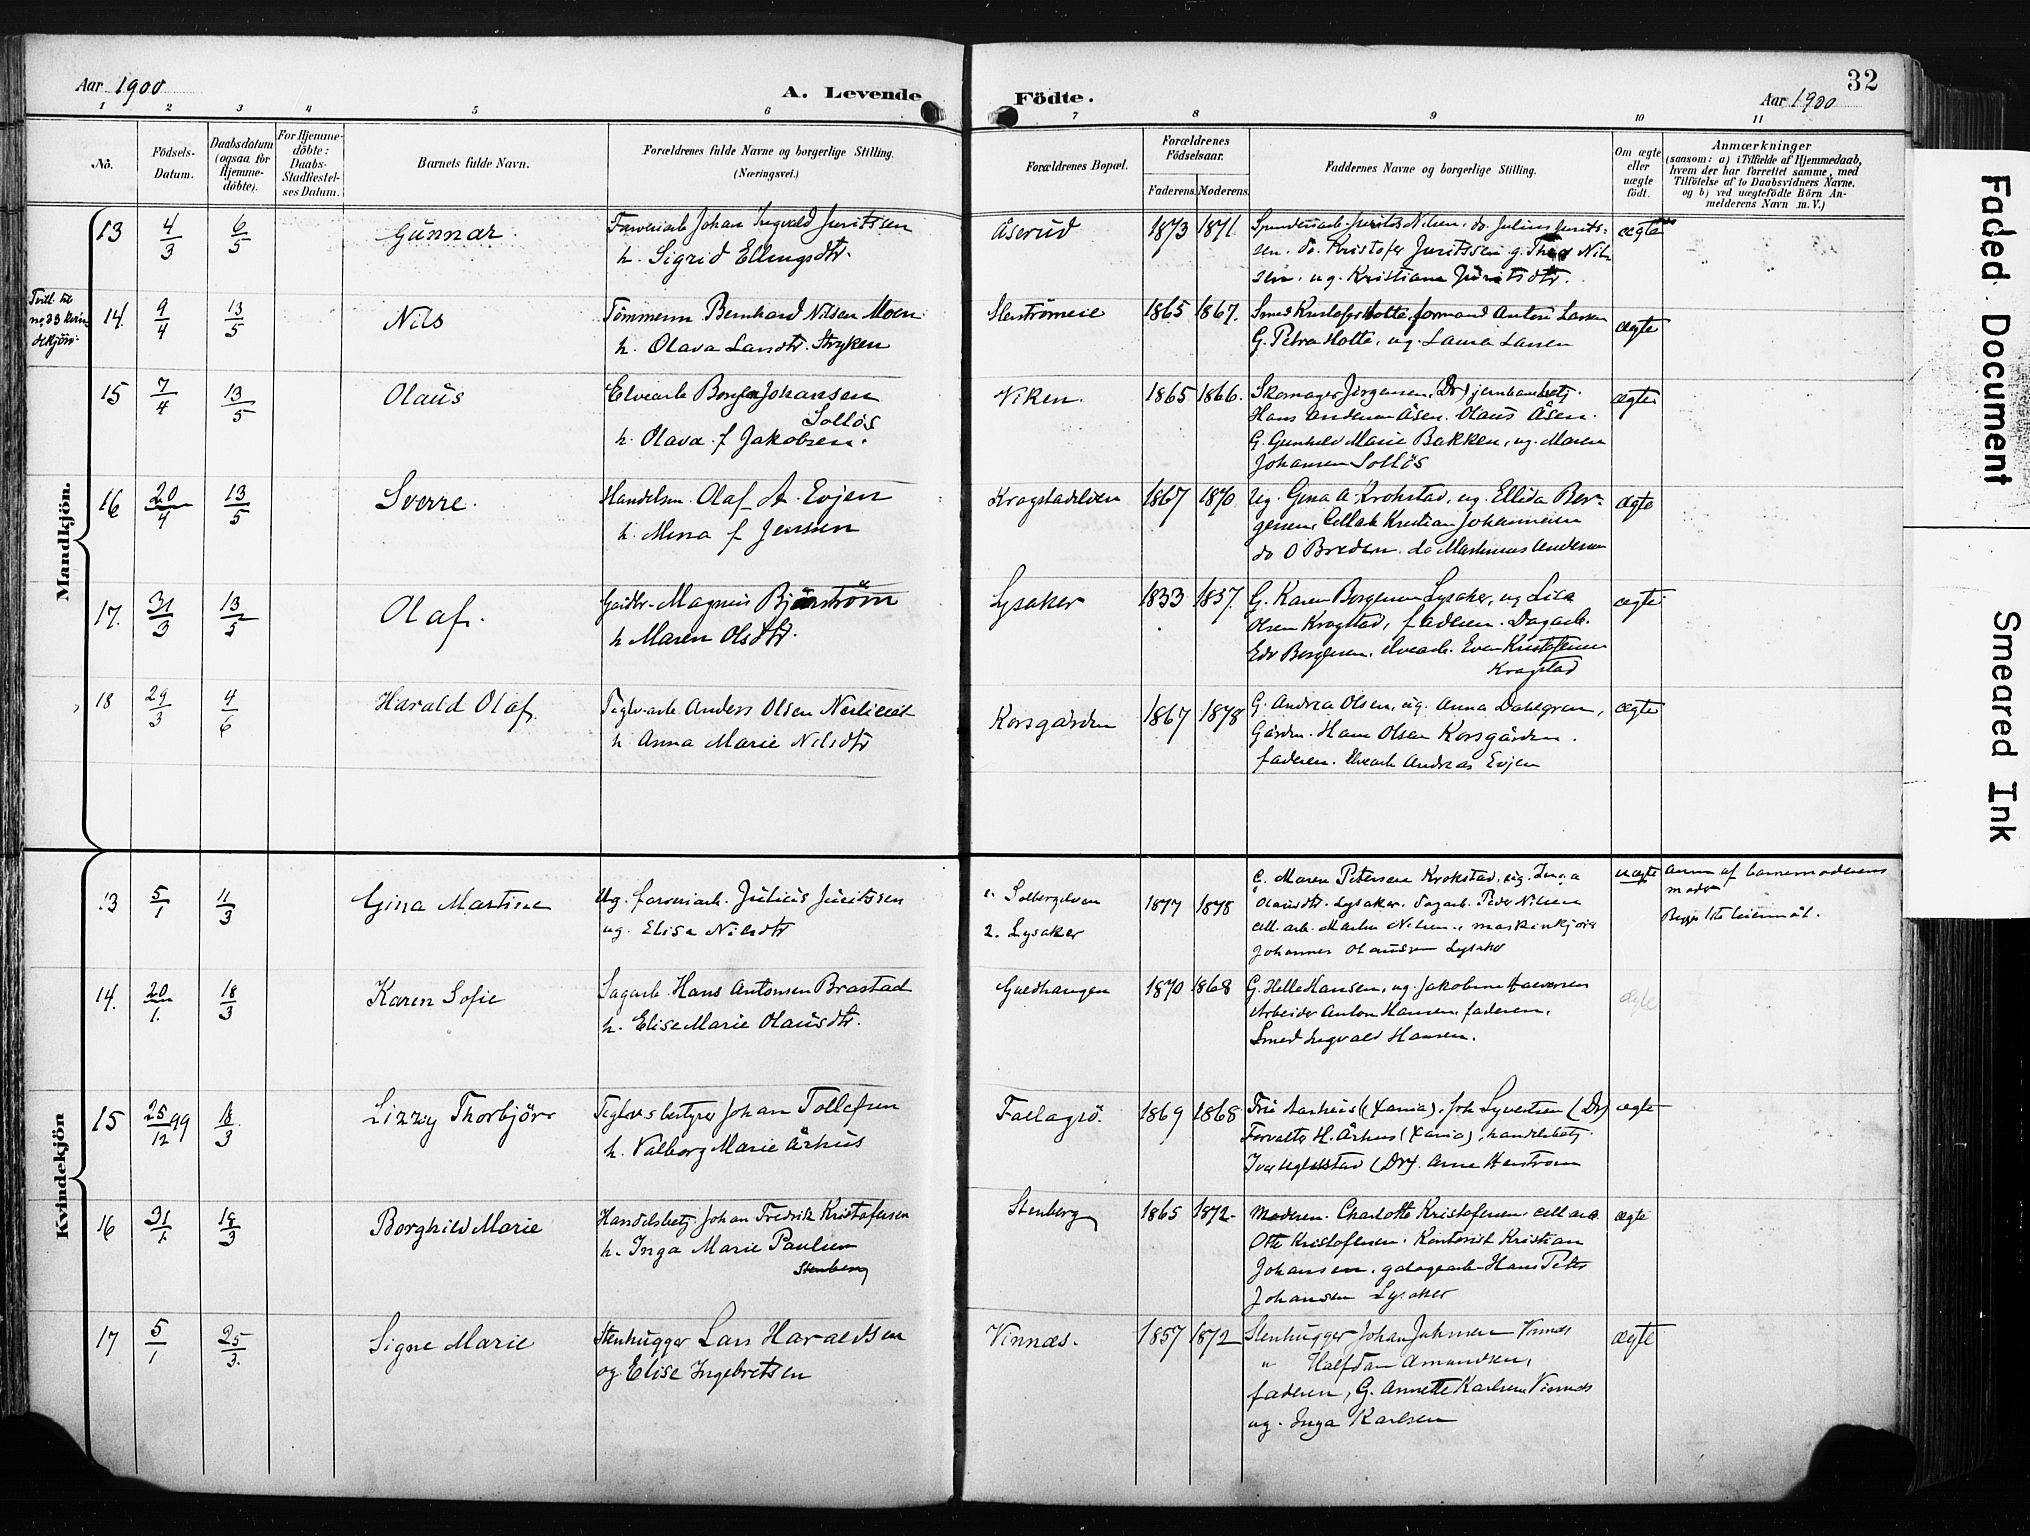 Aar 1900
A. Levende Födte.
32
Aar 1900
1 2 3 4 5 6 7 8 9 10 11
No.
Födsels-Datum.
Daabsdatum (ogsaa for Hjemme-döbte).
For Hjemme-döbte: Daabs-Stadfæstel-ses Datum.
Barnets fulde Navn.
Forældrenes fulde Navne og borgerlige Stilling.
(Næringsvei.)
Forældrenes Bopæl.
Forældrenes Födselsaar.
Faderens. Moderens.
Faddernes Navne og borgerlige Stilling.
Om ægte eller uægte födt.
Anmærkninger
(saasom: a) i Tilfælde af Hjemmedaab, hvem der har forrettet samme, med Tilföielse af to Daabsvidners Navne, og b) ved uægtefödte Börn An-melderens Navn m. V.)
Mandkjön.
13 4/3 6/5 Gunnar. Farveriarb Johan Ingvald Juritsen
h. Sigrid Ellingsdtr.
Åserud 1873 1871 ægte
14. 9/4 13/5 Nils Tömmerm Bernhard Nilsen Moen
h. Olava Larsdtr. Stryken
1865 1867. Smed Kristofer Hotte, formand Anton Larsen
G. Petra Hotte, ug. Laura Larsen
ægte
15 7/4 13/5 Olaus Elvearb Borger Johansen
Solløs
h. Olava f Jakobsen.
Viken. 1865 1866. Skomager Jörgensen, (Dr) jernbanebetj.
Hans Andersen Åsen. Olaus Åsen.
G. Gunhild Marie Bakken, ug. Maren
Johansen Solløs
ægte
16 20/4 13/5 Sverre. Handelsm. Olaf A. Evjen
h. Mina f Jenssen
1867 1870 Ug. Gina A. Krokstad, ug. Ellida Ber-
gersen, Cellarb Kristian Johannesen
do O Bredsen. do Martinius Andersen
ægte
17. 31/3 13/5 Olaf. Magnus Bjørnström
h Maren Olsdtr.
Lysaker 1833 1857. G. Karen Borgersen Lysaker, ug Lisa
Olsen Krogstad, faderen. Dagarb.
Edv Borgersen. elvearb. Even Kristofersen
Krogstad
ægte
18 29/3 4/6 Harald Olaf. Teglv.arb. Anders Olsen
h. Anna Marie Nilsdtr
Korsgården 1867 1878 G. Andrea Olsen, ug. Anna Dahlgren,
Gårdm. Hans Olsen Korsgården.
faderen. Elvearb Andreas Evjen
ægte
Kvindekjön
13 5/1 11/3 Gina Martine Ug. farveriarb. Julius Juritssen
ug. Elise Nilsdtr
1. Solbergelven
2. Lysaker
1877 1878 G. Maren Petersen Krokstad, ug. Inga
Olausdtr. Lysaker. Dagarb. Peder Nilsen
cell. arb. Martin Nilsen., maskinkjörer
Johannes Olaussen Lysaker
uægte anm af barnemoderens
moder
Begges 1ste leiermål.
14. 20/1. 18/3 Karen Sofie Sagarb. Hans Antonsen Brastad
h. Elise Marie Olausdtr.
Guldhaugen 1870 1868 G. Helle Hansen, ug. Jakobine Halvorsen
Arbeider Anton Hansen, faderen,
Smed Ingvald Hansen.
ægte
15 25/12 99 18/3 Lizzy Thorbjör Teglv.s bestyrer Johan Tollefsen
h. Valborg Marie Århus
Fallagsö. 1869 1868 Fru Aarhuus (Xania). frk Syvertsen (Dr)
Forvalter H. Århus (Xania), handelsbetj.
ægte
16 31/1. 18/3 Borghild Marie Handelsbetj. Johan Fredrik Kristofersen
h. Inga Marie Paulsen
Stenberg
Stenberg 1865 1872 Moderen. Charlotte Kristofersen. cell.arb.
Otto Kristofersen. Kontorist Kristian
Johansen. Hans Peter
Johansen Lysaker
ægte
17 5/1 25/3. Signe Marie Stenhugger Lars Haraldsen
og Elise Ingebretsen
Vinnæs. 1857 1872 Stenhugger Johan Johnsen Vinnæs
" Halfdan Amundsen,
faderen, G. Annette Karlsen Vinnæs
ug. Inga Karlsen
ægte
Faded Document
Smeared Ink